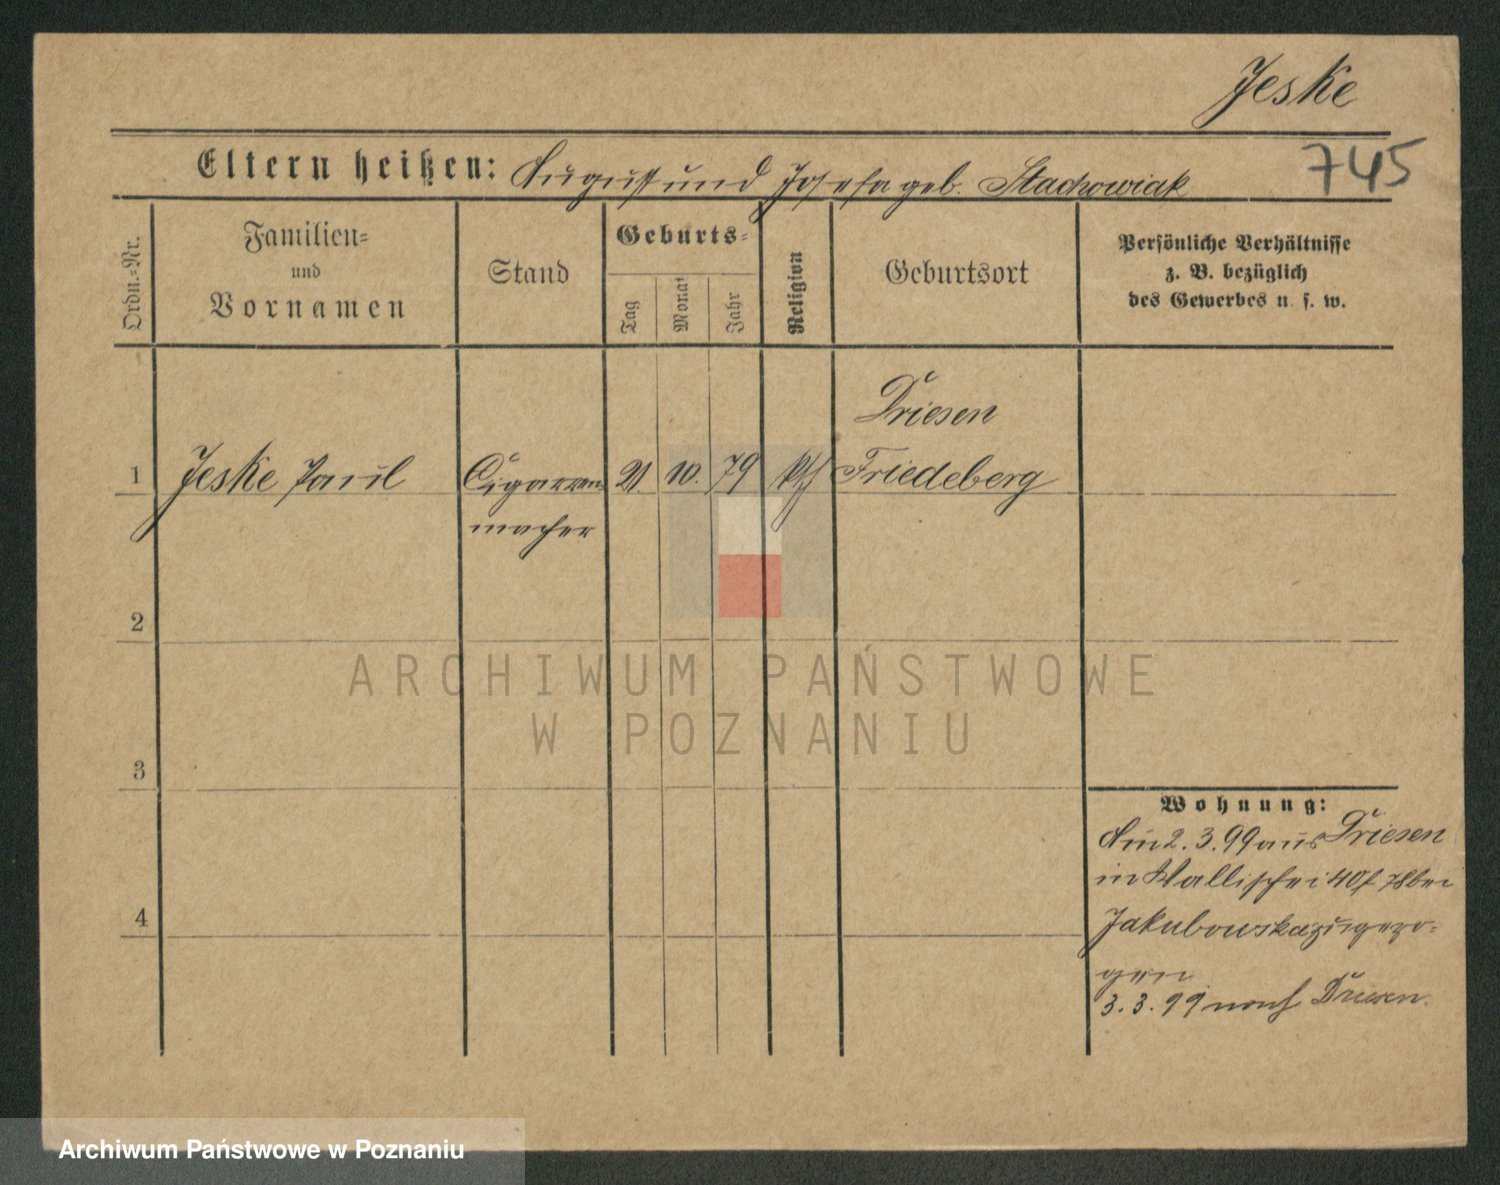 Jeske
745
Eltern heißen: August und Josefa geb. Stachowiak
Ordn.-Nr.
Familien-
und
Vornamen
Stand
Geburts-
Tag
Monat
Jahr
Religion
Geburtsort
Persönliche Verhältnisse
z. B. bezüglich
des Gewerbes u. s. w.
Driesen
1 Jeske Paul Cigarren 21. 10. 79 kth Friedeberg
macher
2
3
4
Wohnung:
Am 2.3.99 aus Driesen
in Wallischei 40/ bei
Jakubowska zugezo-
gen
3.3.99 nach Driesen.
ARCHIWUM PAŃSTWOWE
W POZNANIU
Archiwum Państwowe w Poznaniu